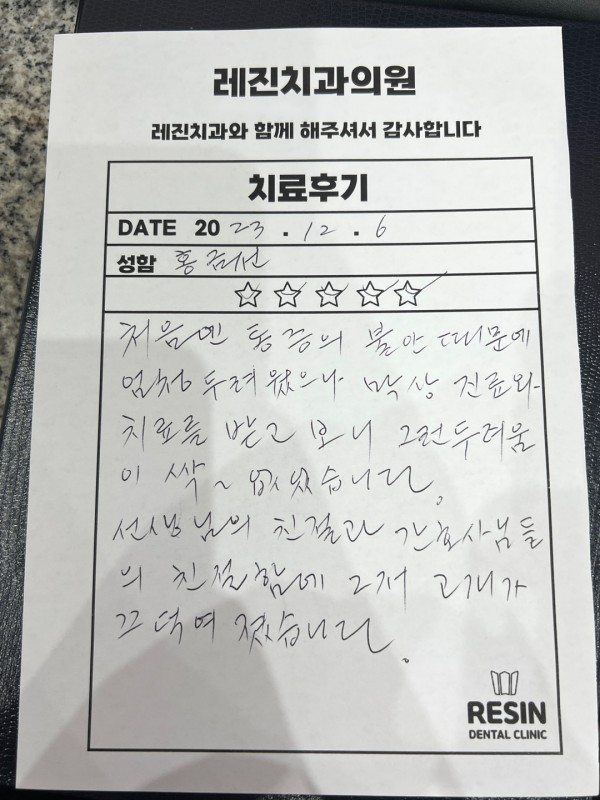 레진치과의원
레진치과와 함께 해주셔서 감사합니다
치료후기
DATE 20 23 . 12 . 6
성함 홍
처음엔 통증의 불안 때문에
엄청 두려웠으나 막상 진료와
치료를 받고 보니 그런두려움
이 싹~ 없었습니다.
선생님의 친절과 간호사님들
의 친절함에 그저 고개가
끄덕여 졌습니다.
RESIN
DENTAL CLINIC